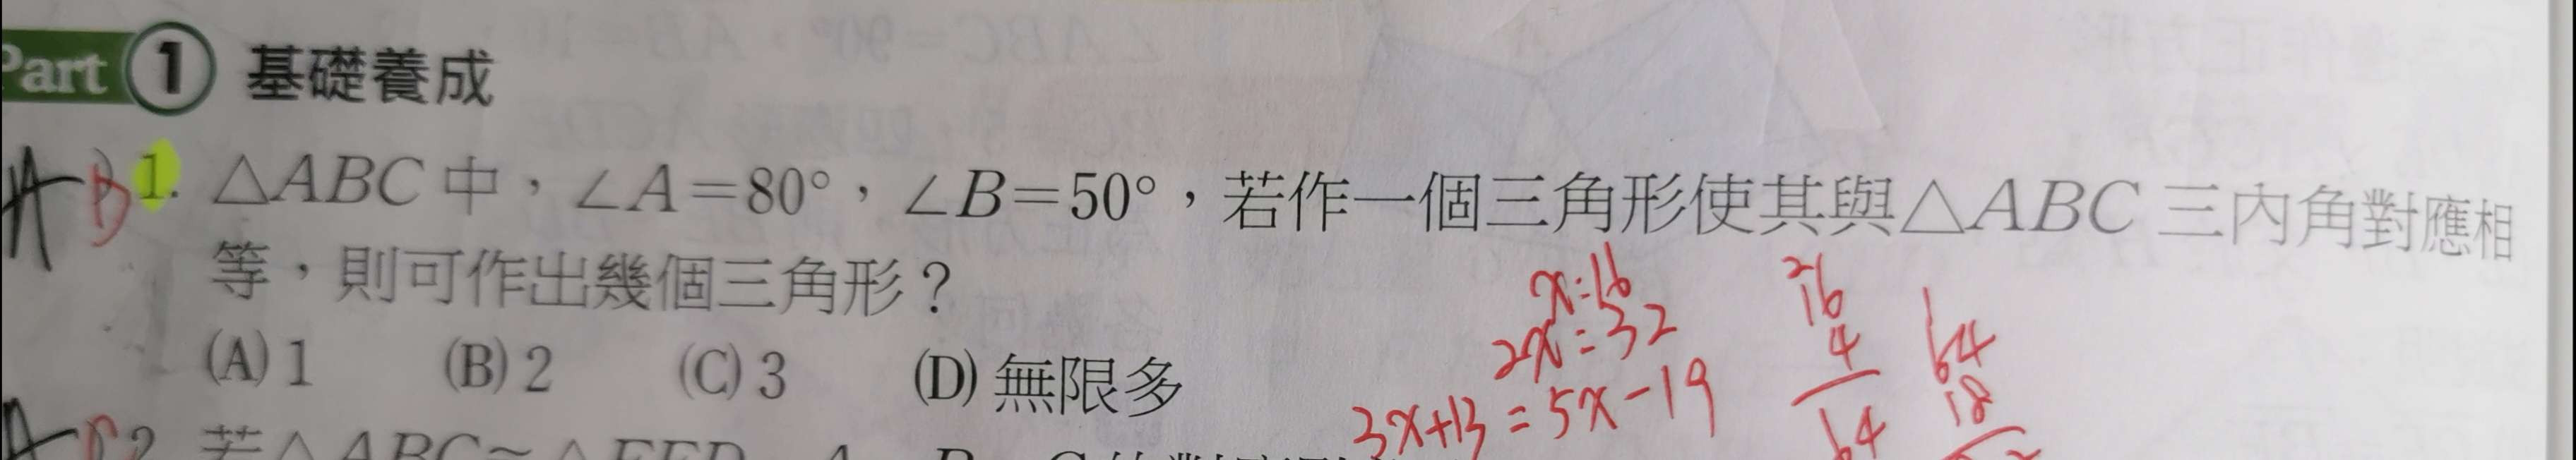 Part 1 基礎養成
A B 1. △ABC中，∠A=80°，∠B=50°，若作一個三角形使其與△ABC三內角對應相
等，則可作出幾個三角形？
(A) 1 (B) 2 (C) 3 (D) 無限多
x=16
2x=32
3x+13=5x-19
16
4
64
64
18
2. 若△ABC